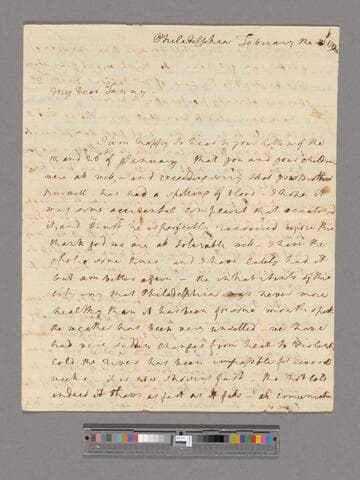 Philadelphia February the
My Dear Fanny
I am happy to hear by your letters of the
and 26 of January that you and your children
were at well - and exceeding sorry that your Brother
Burwell has had a spitting of blood - I hope it
was some accidental complaint that occationd
it and trust he is perfectly recovered before this
thank god we are all tolerable well - I have the
cholic some times and I have lately had it
but am better again - the inhabitants of this
city say that Philadelphia was never more
healthy than it has been for some months past
the weather has been very unsetled we have
had very suden changes from heat to violent
cold the river has been impassible for several
weeks - it is now snowing fast - tho not cold
indeed it thaws as fast as it fals - all